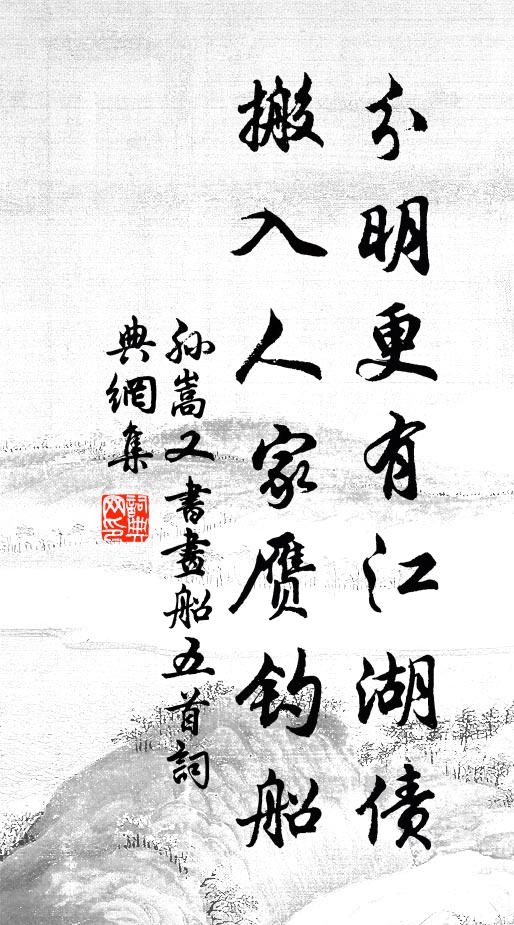 分明更有江湖债
搬入人家赝钓船
孙嵩又書畫船五首詞
典網集
詞典
网印